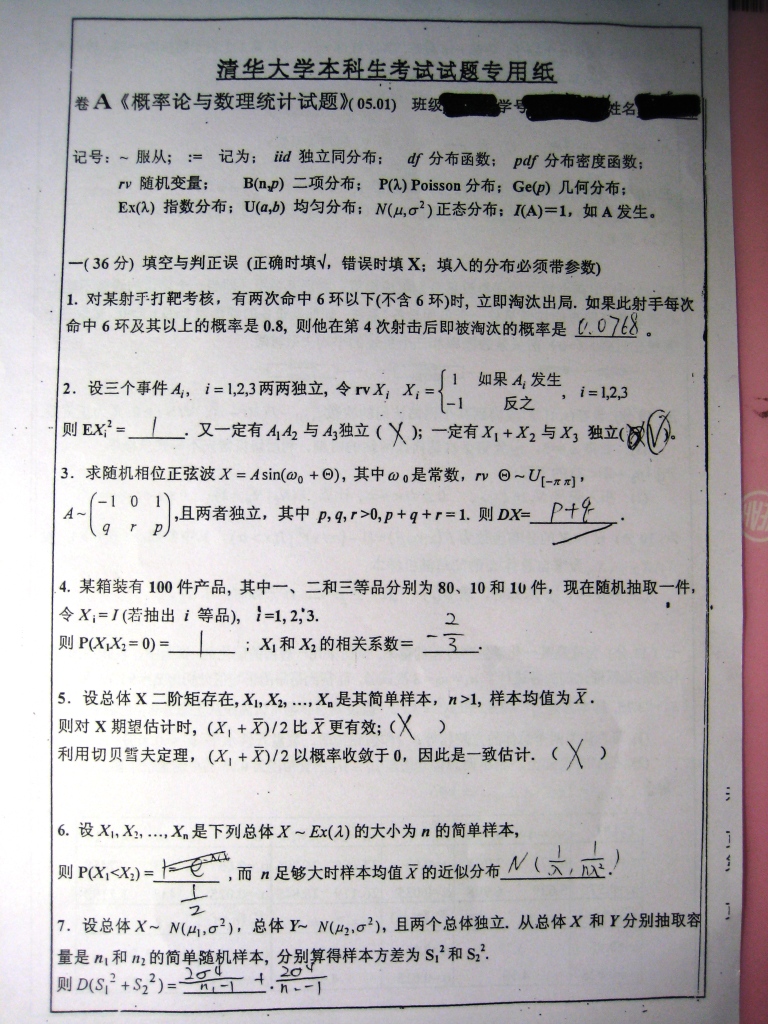 清华大学本科生考试试题专用纸
卷 A《概率论与数理统计试题》(05.01) 班级 学号 姓名
记号：~ 服从； := 记为； iid 独立同分布； df 分布函数； pdf 分布密度函数；
rv 随机变量； B(n,p) 二项分布； P(λ) Poisson 分布；Ge(p) 几何分布；
Ex(λ) 指数分布；U(a,b) 均匀分布；N(μ,σ²) 正态分布；I(A)＝1，如 A 发生。
一( 36 分) 填空与判正误 (正确时填√，错误时填 X；填入的分布必须带参数)
1. 对某射手打靶考核，有两次命中 6 环以下(不含 6 环)时, 立即淘汰出局. 如果此射手每次
命中 6 环及其以上的概率是 0.8, 则他在第 4 次射击后即被淘汰的概率是 0.0768 。
2．设三个事件 Aᵢ, i = 1,2,3 两两独立, 令 rv Xᵢ Xᵢ = { 1 如果 Aᵢ 发生 , i = 1,2,3
−1 反之
则 EXᵢ² = 1 . 又一定有 A₁A₂ 与 A₃独立 ( X ); 一定有 X₁ + X₂ 与 X₃ 独立( √ )。
3．求随机相位正弦波 X = A sin(ω₀ + Θ), 其中 ω₀是常数, rv Θ ~ U[−π π] ,
A ~ (−1 0 1
q r p) ,且两者独立，其中 p,q,r >0, p + q + r = 1. 则 DX= p+q .
4. 某箱装有 100 件产品, 其中一、二和三等品分别为 80、10 和 10 件，现在随机抽取一件，
令 Xᵢ = I (若抽出 i 等品), i =1, 2, 3.
则 P(X₁X₂ = 0) = 1 ；X₁ 和 X₂ 的相关系数＝ −2/3 .
5．设总体 X 二阶矩存在, X₁, X₂, …, Xₙ 是其简单样本，n >1, 样本均值为 X̄ .
则对 X 期望估计时, (X₁ + X̄)/2 比 X̄ 更有效; ( X )
利用切贝雪夫定理，(X₁ + X̄)/2 以概率收敛于 0，因此是一致估计. ( X )
6. 设 X₁, X₂, …, Xₙ 是下列总体 X ~ Ex(λ) 的大小为 n 的简单样本,
则 P(X₁<X₂) = 1/2 , 而 n 足够大时样本均值 X̄ 的近似分布 N ( 1/λ , 1/nλ² ) .
7．设总体 X ~ N(μ₁,σ²)，总体 Y~ N(μ₂,σ²), 且两个总体独立. 从总体 X 和 Y 分别抽取容
量是 n₁ 和 n₂ 的简单随机样本, 分别算得样本方差为 S₁² 和 S₂².
则 D(S₁² + S₂²) = 2σ⁴/(n₁−1) +